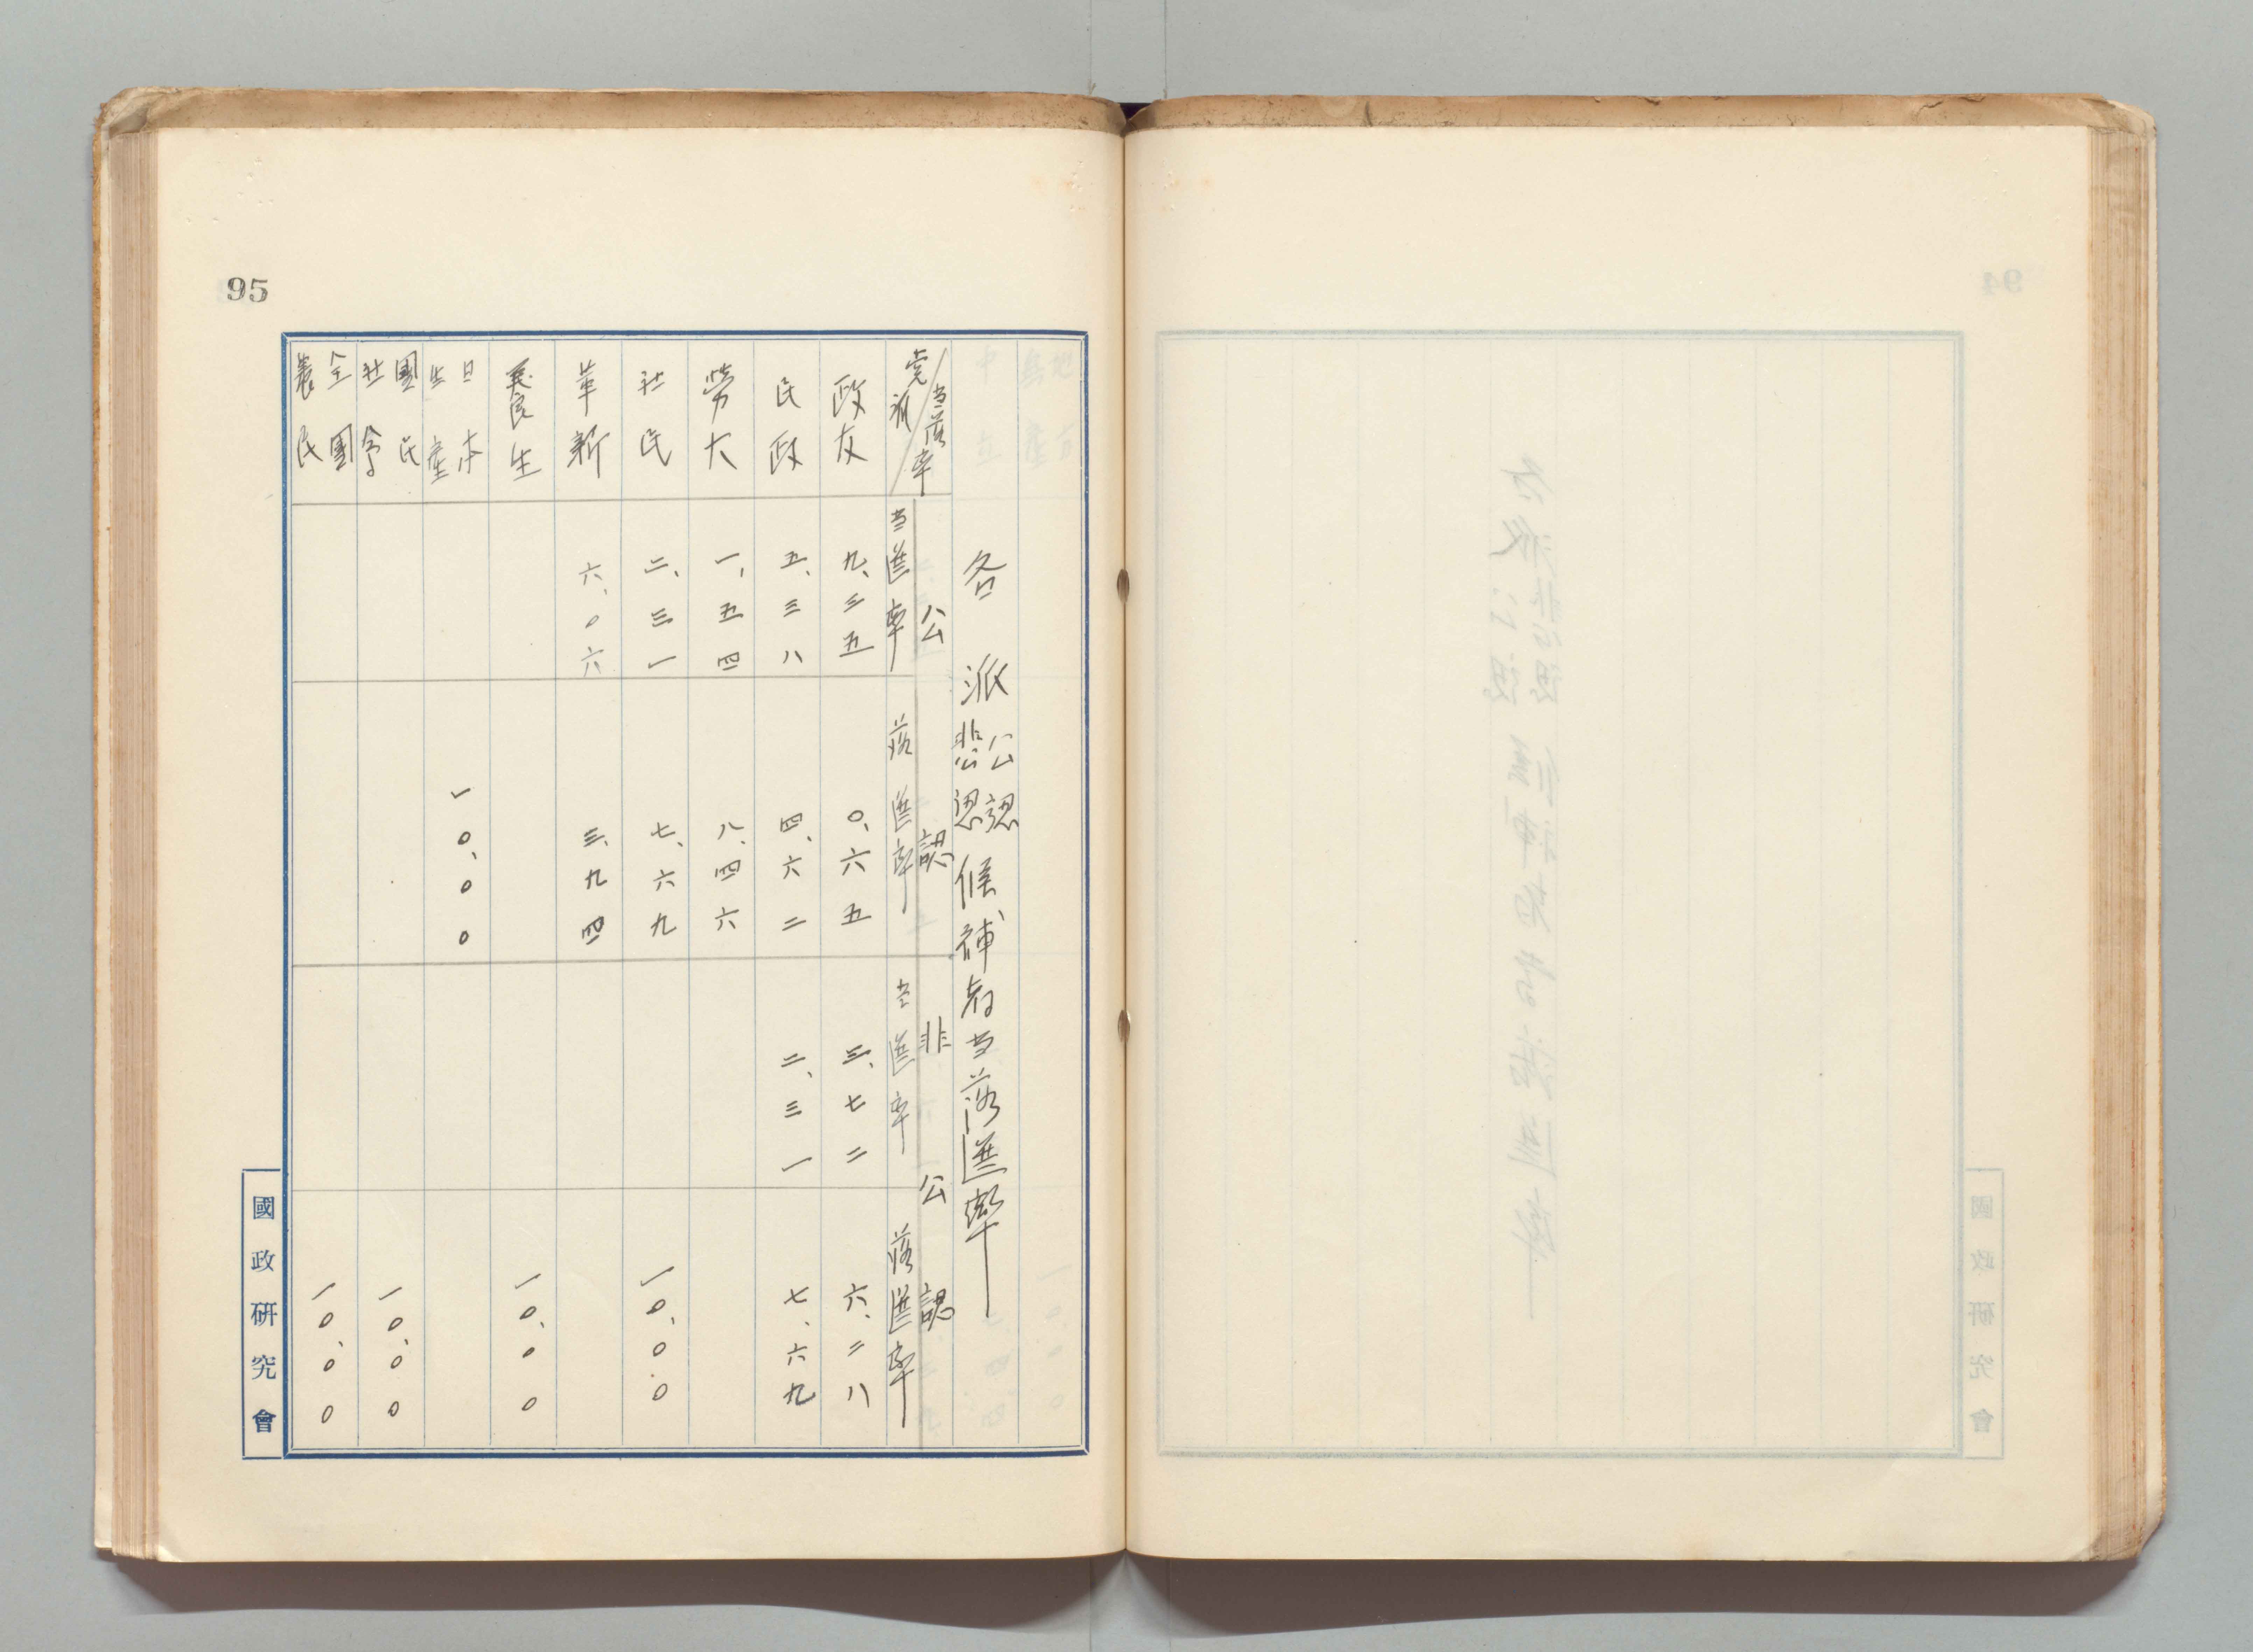 95
各派公認
非公認候補者当落選率
党派 当落率
公認
非公認
当選率
落選率
当選率
落選率
政友 九、三五 〇、六五 三、七二 六、二八
民政 五、三八 四、六二 二、三一 七、六九
労大 一、五四 八、四六
社民 二、三一 七、六九 一〇、〇〇
革新 六、〇六 三、九四
生 一〇、〇〇
日本
生産 一〇、〇〇
国民
社会 一〇、〇〇
全国
農民 一〇、〇〇
國政研究會